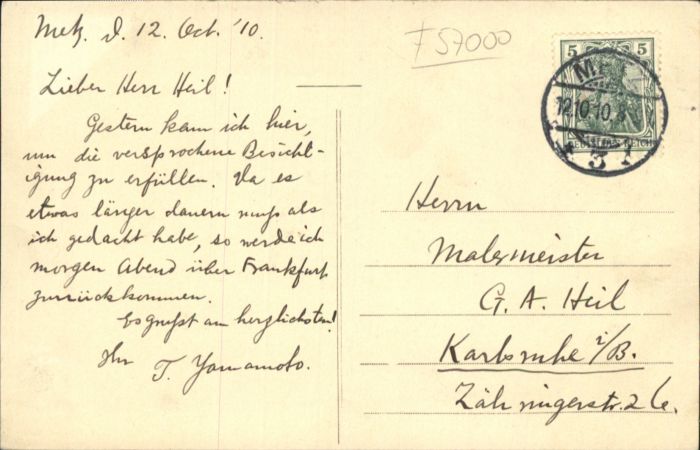 Metz. d. 12. Oct. '10.
Lieber Herr Heil!
Gestern kam ich hier,
um die versprochene Besicht-
igung zu erfüllen. Da es
etwas länger dauern muss als
ich gedacht habe, so werde ich
morgen Abend über Frankfurt
zurückkommen.
Es grüsst am herzlichsten!
Ihr T. Yamamoto.
F 57000
5 5
M
12.10.10.8
* 3
DEUTSCHES REICH
Herrn
Malermeister
G. A. Heil
Karlsruhe i/B.
Zähringerstr. 26.